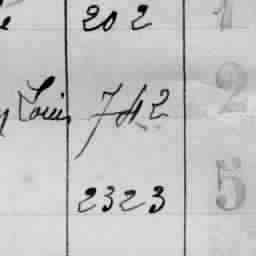 202 1
Louis 742 2
2323 5